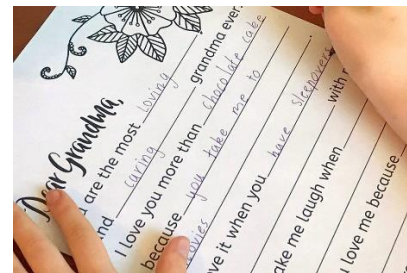 Dear Grandma,
are the most loving
nd caring grandma ever.
I love you more than chocolate cake
because you take me to
movies .
ve it when you have sleepovers with
ake me laugh when
I love me because